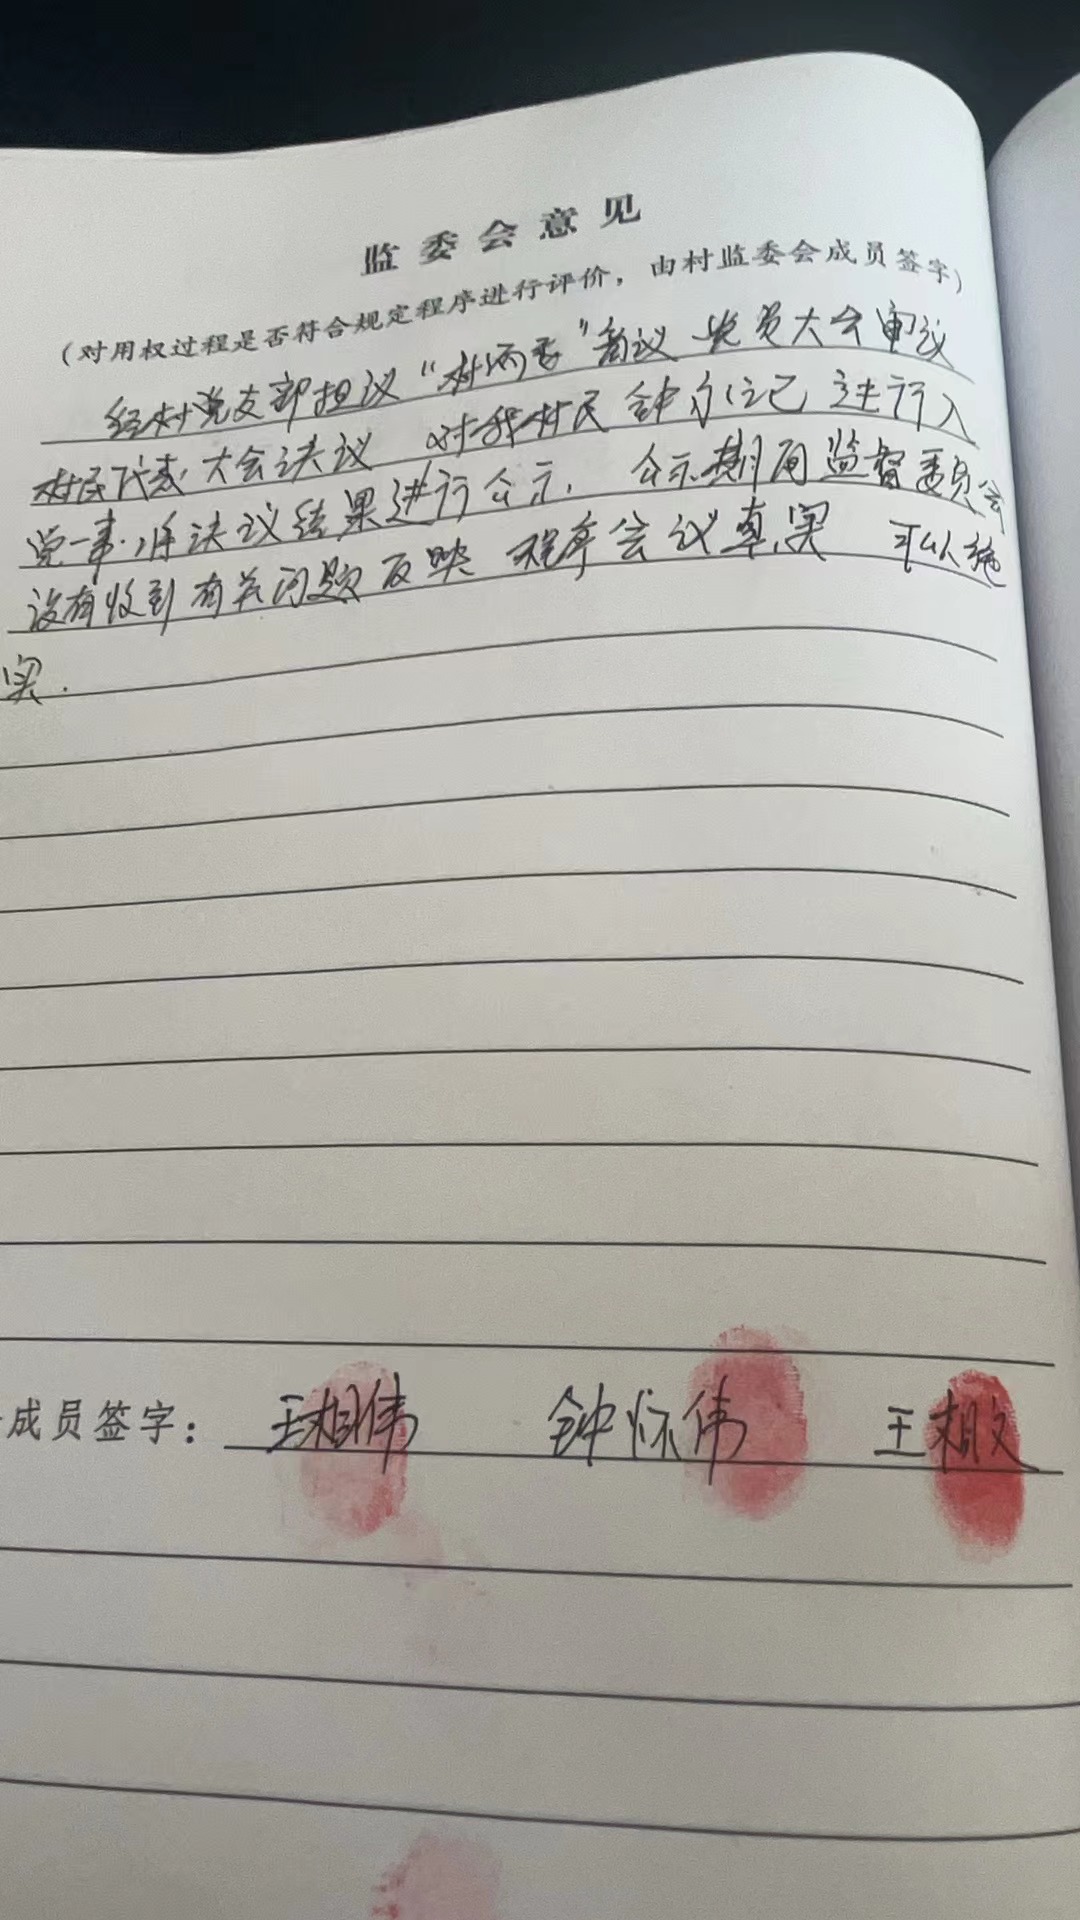 监委会意见
（对用权过程是否符合规定程序进行评价，由村监委会成员签字）
经村党支部担议“村两委”商议 党员大会审议
村民代表大会决议 对我村民钟 进行入
党一事，将决议结果进行公示，公示期间监督委员会
没有收到有关问题反映 程序会议真实 可以施
实.
成员签字：王相伟 钟怀伟 王相文